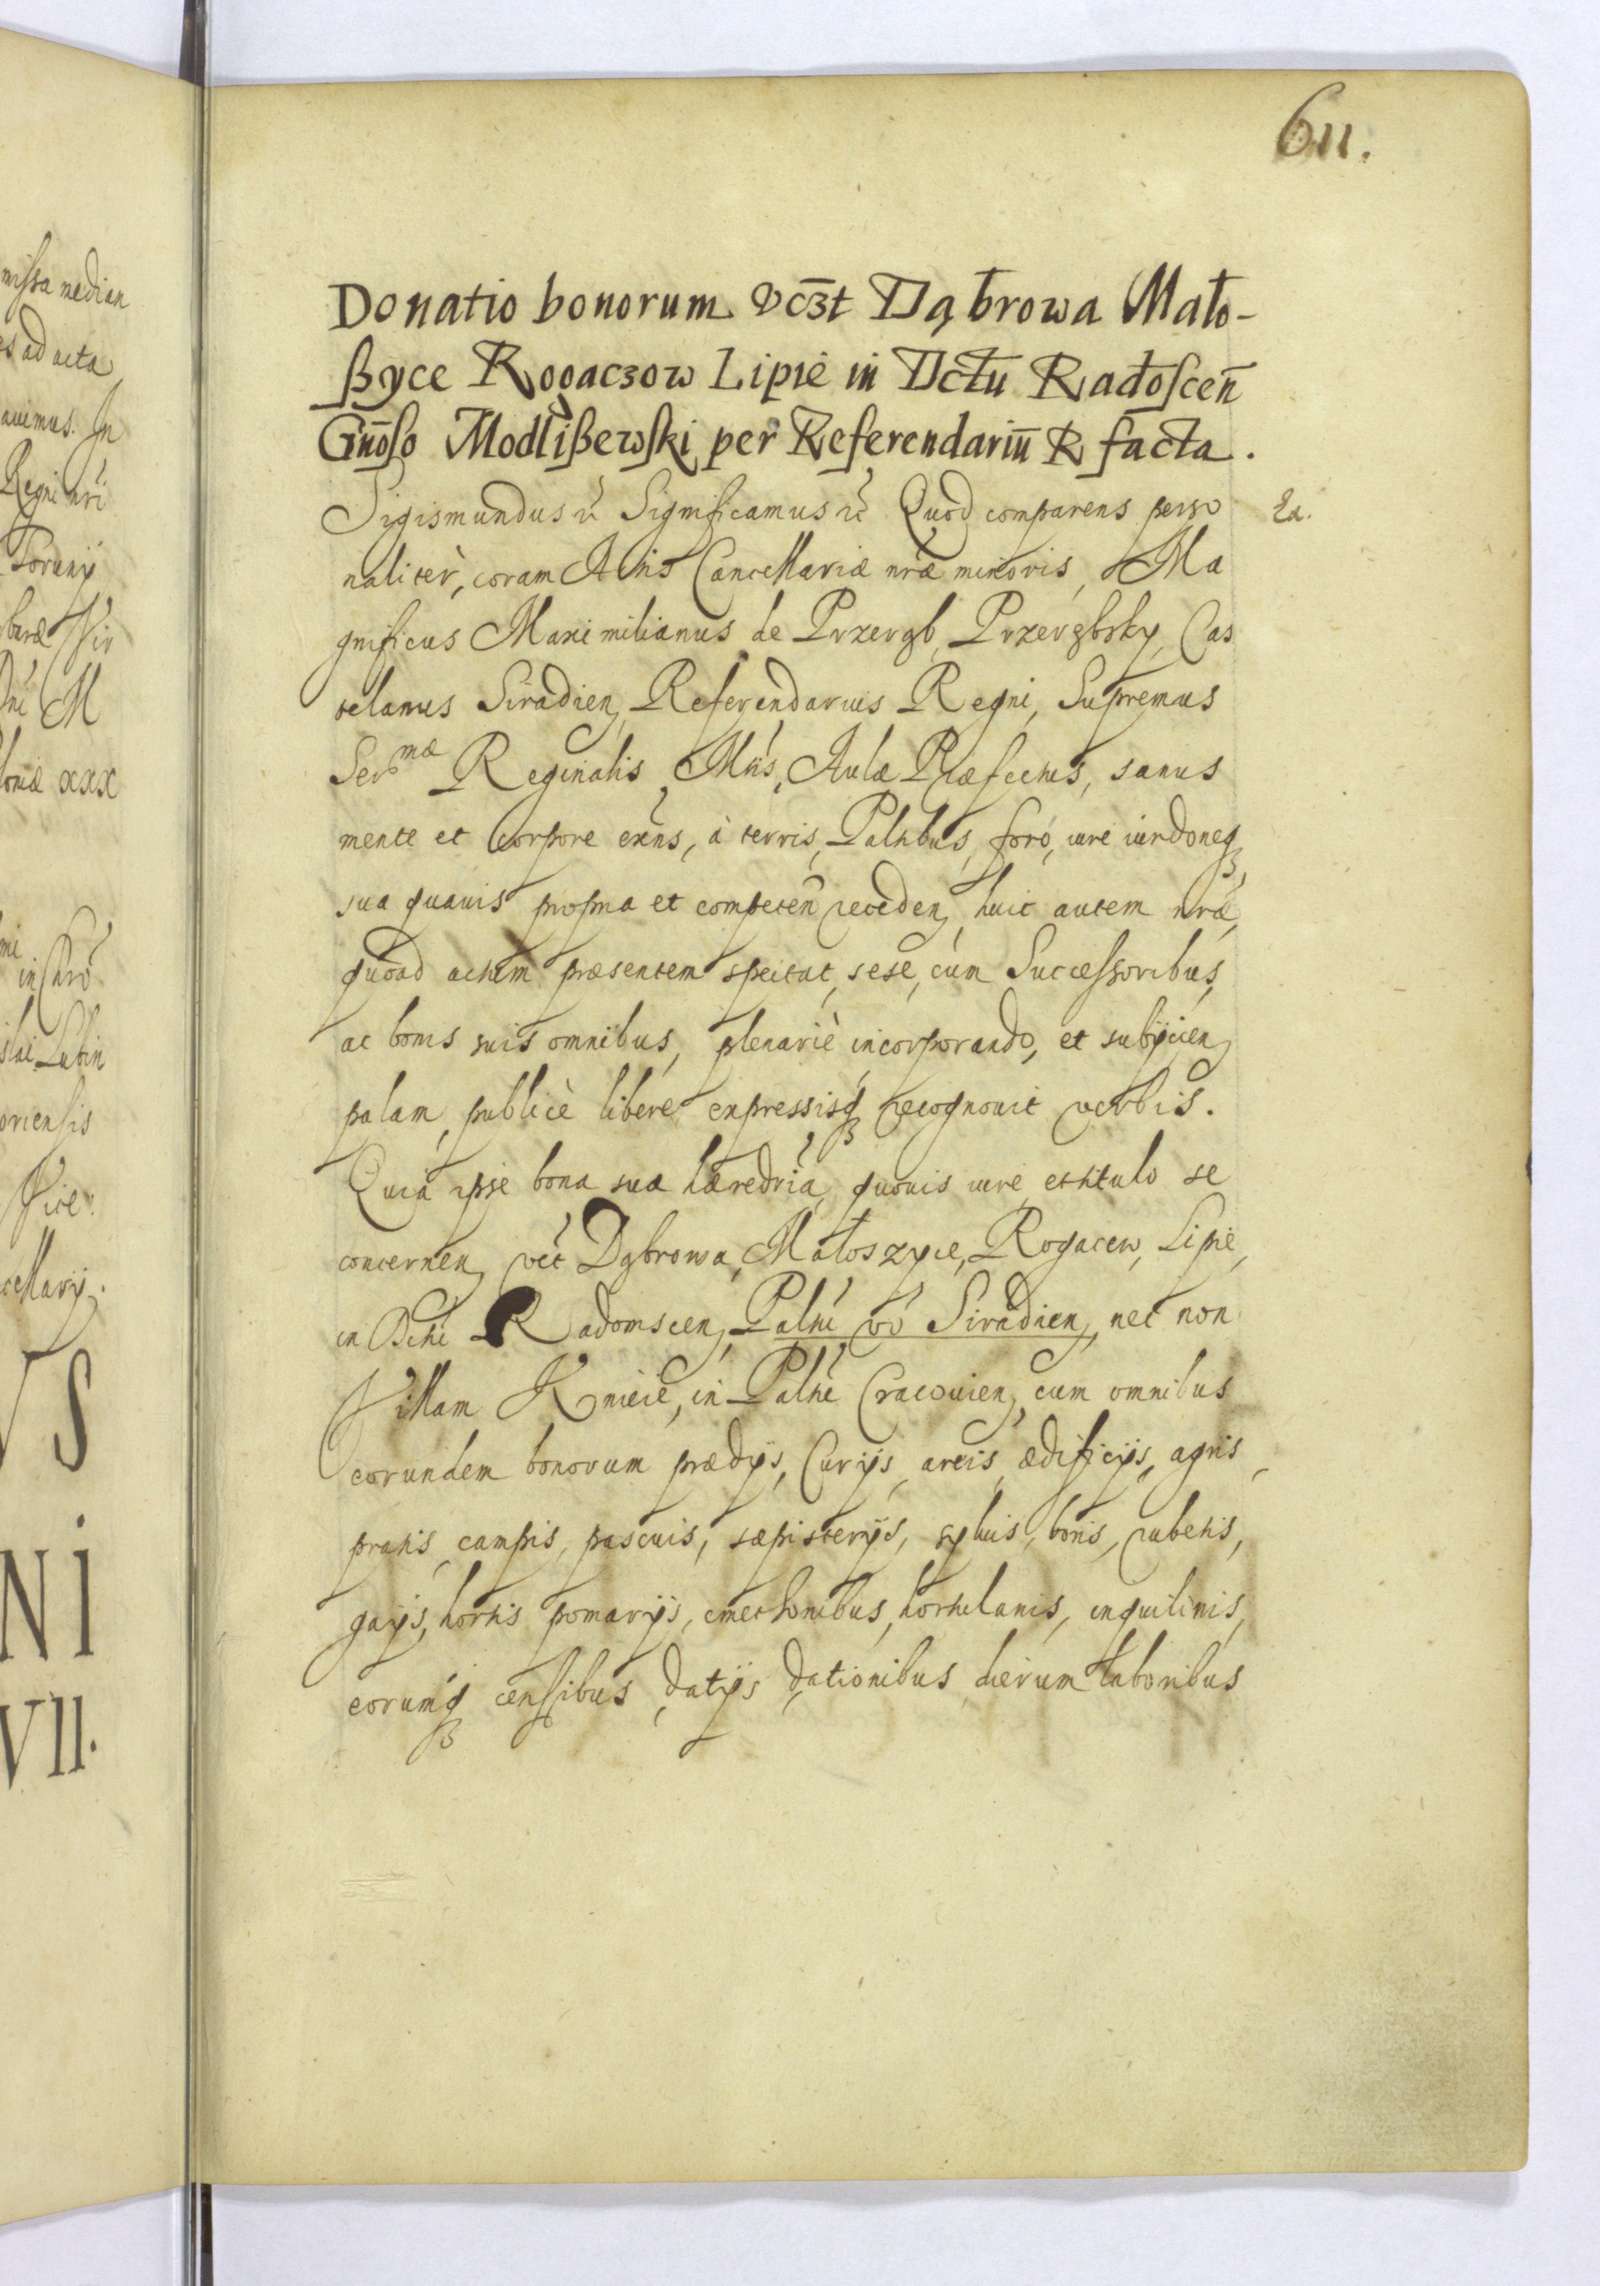 611.
Donatio bonorum vczt Dąbrowa Mało-
ßyce Rogaczow Lipie in Dctu Radoscen̄
Gnōso Modlißewski per Referendariū R facta.
Sigismundus &c Significamus &c Quod comparens perso
2a.
naliter, coram Actis Cancellariæ nr̄æ minoris, Ma
gnificus Maximilianus de Przerąb, Przerębsky, Cas
telanus Siradien, Referendarius Regni, Supremus
Ser^mæ Reginalis Mtis, Aulæ Præfectus, sanus
mente et corpore exn̄s, à terris, Paltibus, foro, iure iurdoneq;
sua quauis propria et competen̄ receden, huic autem nr̄æ,
quoad actum præsentem spectat, sese, cum Successoribus,
ac bonis suis omnibus, plenariè incorporando, et subijcien,
palam, publicè libere expressisq; recognouit verbis.
Quia ipse bona sua hæredria, quouis iure, et titulo se
concernen, vct Dąbrowa, Małoszyce, Rogacew, Lipie,
in Dctu Radomscen, Paltu vo Siradien, nec non
Villam Knieie, in Paltu Cracouien, cum omnibus
eorundem bonorum prædijs, Curijs, areis, ædificijs, agris,
pratis, campis, pascuis, sæpisterijs, syluis, boris, rubetis,
gaijs, hortis pomarijs, cmethonibus, hortulanis, inquilinis,
eorumq; censibus, datijs, dationibus, dierum laboribus
missa median
es ad acta
auimus. In
Regni nr̄i
Toruny
M
xxx
in Chrō
Lublin
oriensis
Vice
cellarij.
VS
NI
VII.